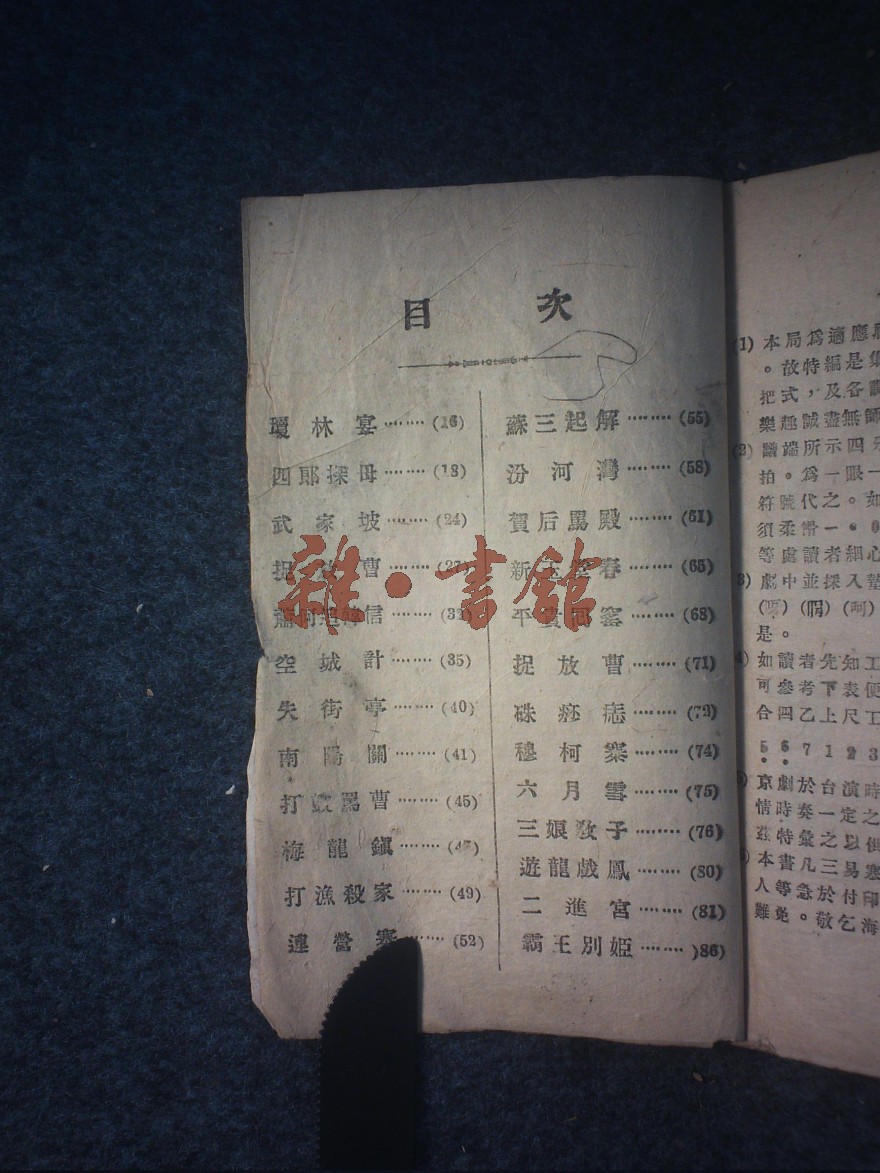 目 次
瓊林宴········(16)
四郎探母········(18)
武家坡········(24)
捉 曹
信
空城計········(35)
失街亭········(40)
南陽關········(41)
打 罵曹········(45)
梅龍鎮········
打漁殺家········(49)
連營寨········(52)
蘇三起解········(55)
汾河灣········(58)
賀后罵殿········(61)
新 春········(65)
平貴回窰········(68)
捉放曹········(71)
硃痧痣········(72)
穆柯寨········(74)
六月雪········(75)
三娘教子········(76)
遊龍戲鳳········(80)
二進宮········(81)
霸王別姬········)86)
雜·書館
(1) 本局爲適應
。故特編是集
把式，及各
樂趣誠盡無師
(2) 端所示四
拍。爲一眼一
符號代之。如
須柔 一。0
等處讀者細心
(3) 劇中並採入墊
(呵)
是。
如讀者先知工
可參考下表便
合四乙上尺工
5 6 7 1 2 3
京劇於台演時
情時奏一定之
茲特彙之以便
本書凡三易寒
人等急於付印
難免。敬乞海